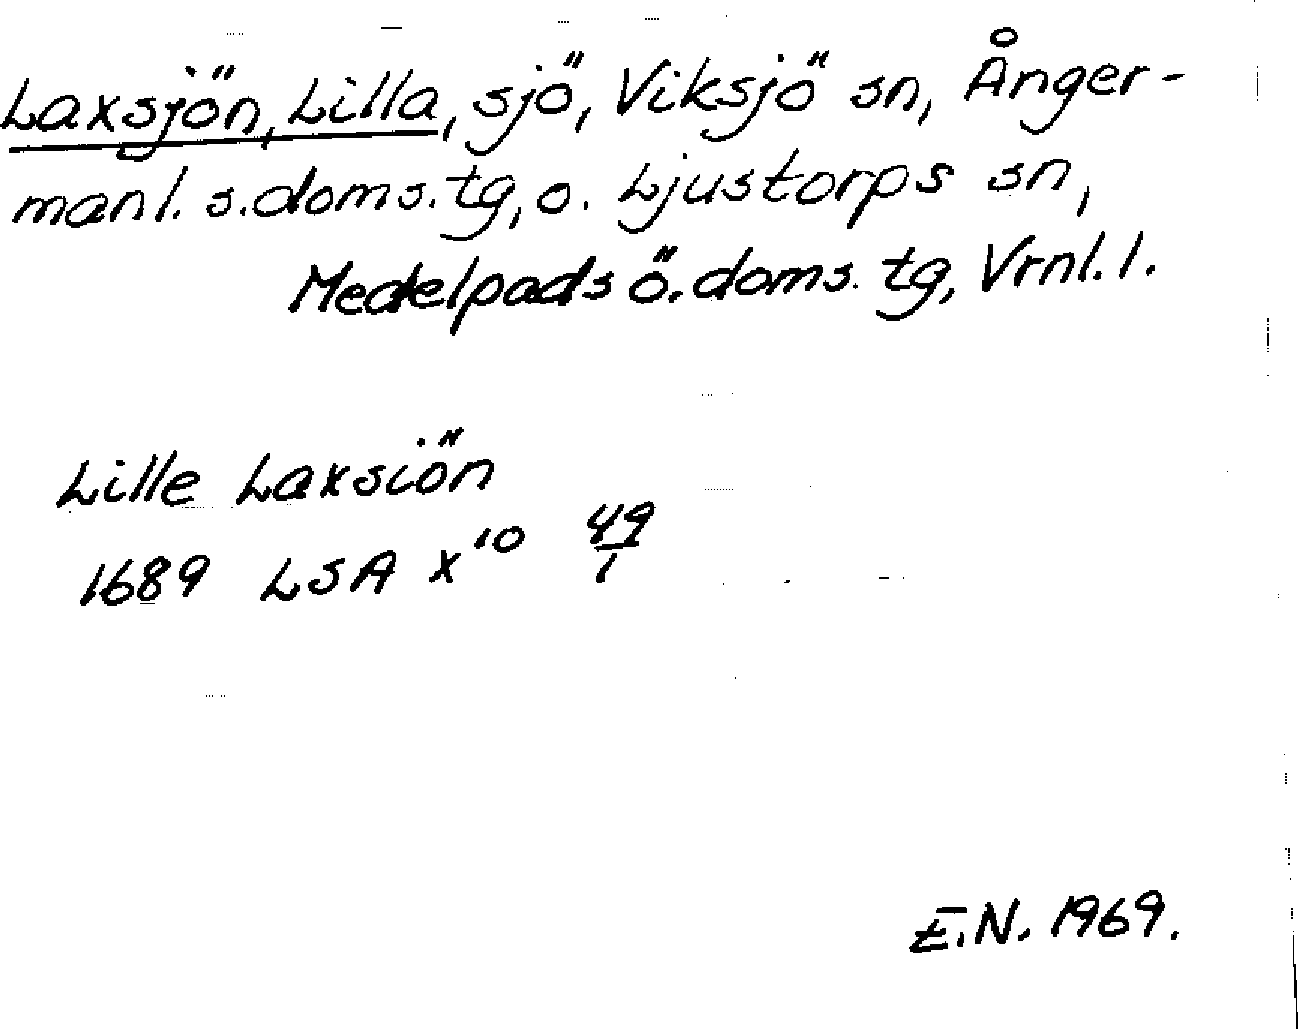 Laxsjön, Lilla, sjö, Viksjö sn, Ånger-
manl. s. doms. tg, o. Ljustorps sn,
Medelpads ö. doms. tg, Vrnl. l.
Lille Laxsiön
1689 LSA X¹⁰ 49/1
E.N. 1969.